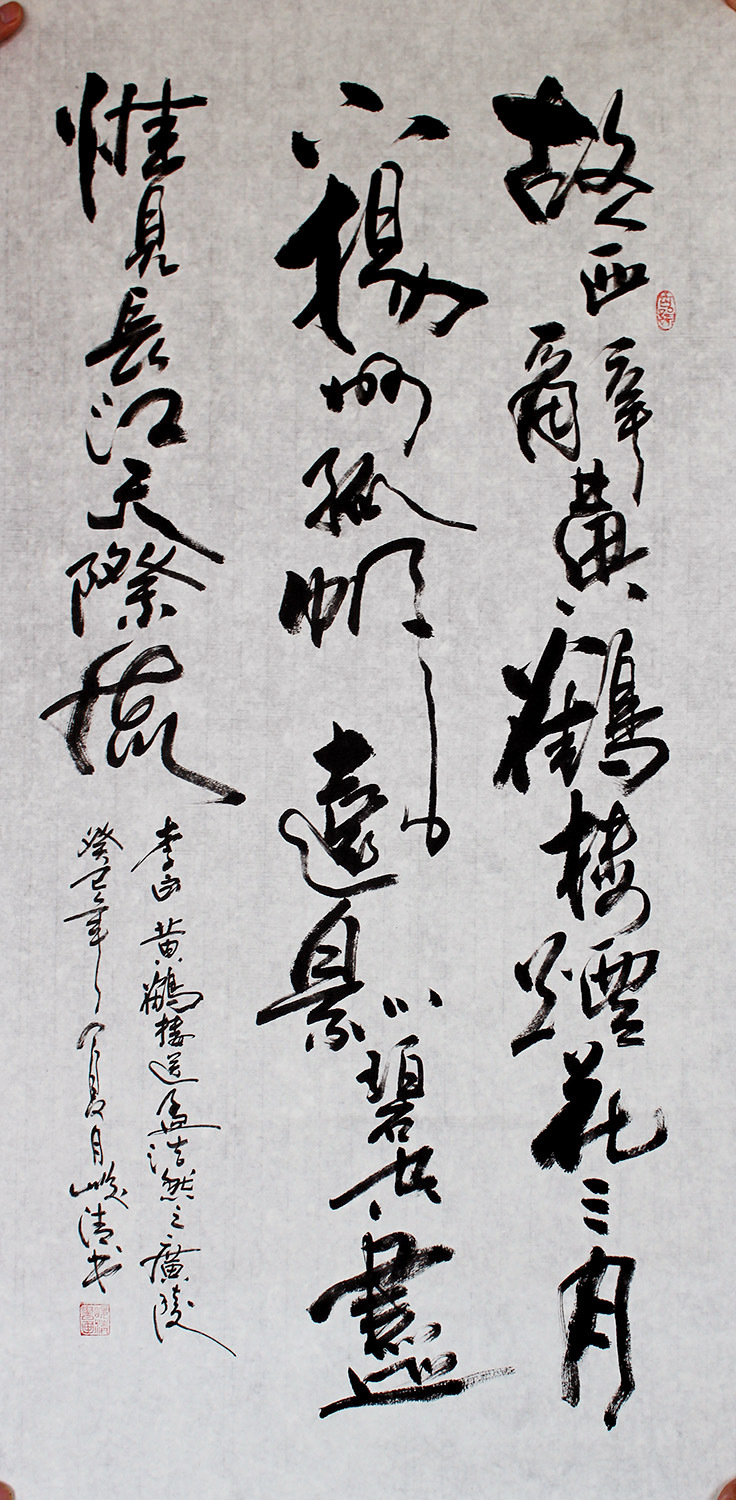 故人西辭黃鶴樓煙花三月
下揚州孤帆遠影碧空盡
惟見長江天際流
李白黃鶴樓送孟浩然之廣陵
癸巳年夏月峻清書